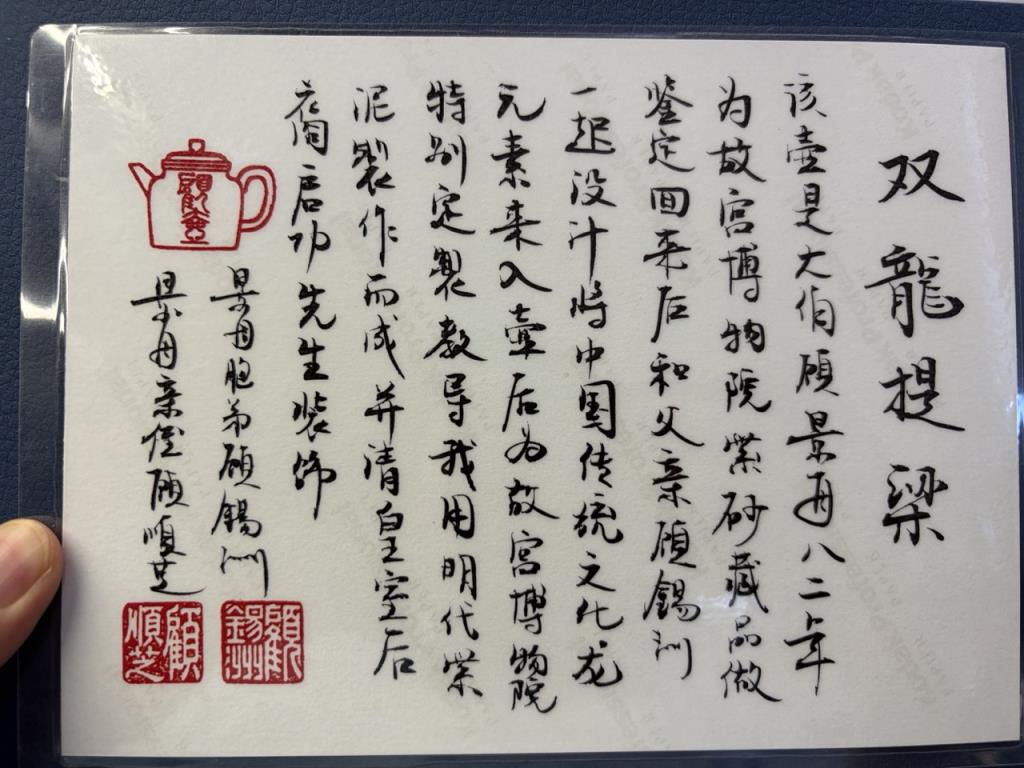 双龍提梁
该壶是大伯顾景舟八二年
为故宫博物院紫砂藏品做
鉴定回来后和父亲顾锡洲
一起设计将中国传统文化龙
元素来入壶后为故宫博物院
特别定製教导我用明代紫
泥製作而成并请皇室后
裔启功先生装饰
景舟胞弟顾锡洲
景舟亲侄顾順芝
顧壺
顧錫洲
顧順芝